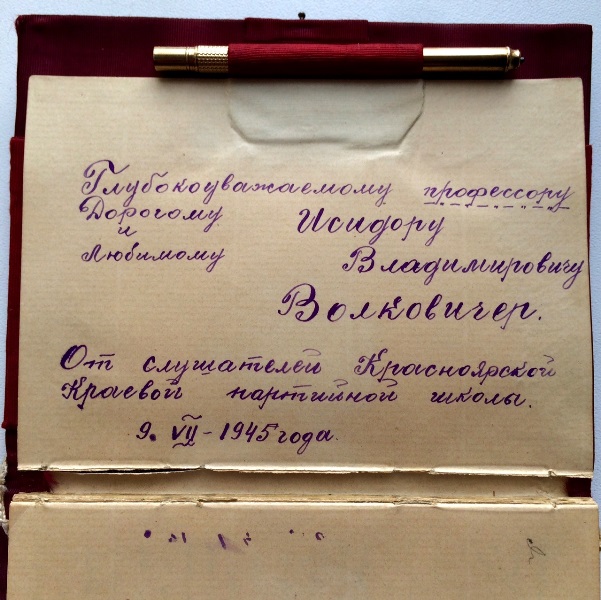 Глубокоуважаемому профессору
Дорогому Исидору
и
Любимому Владимировичу
Волковичер.
От слушателей Красноярской
Краевой партийной школы.
9. VII - 1945 года.